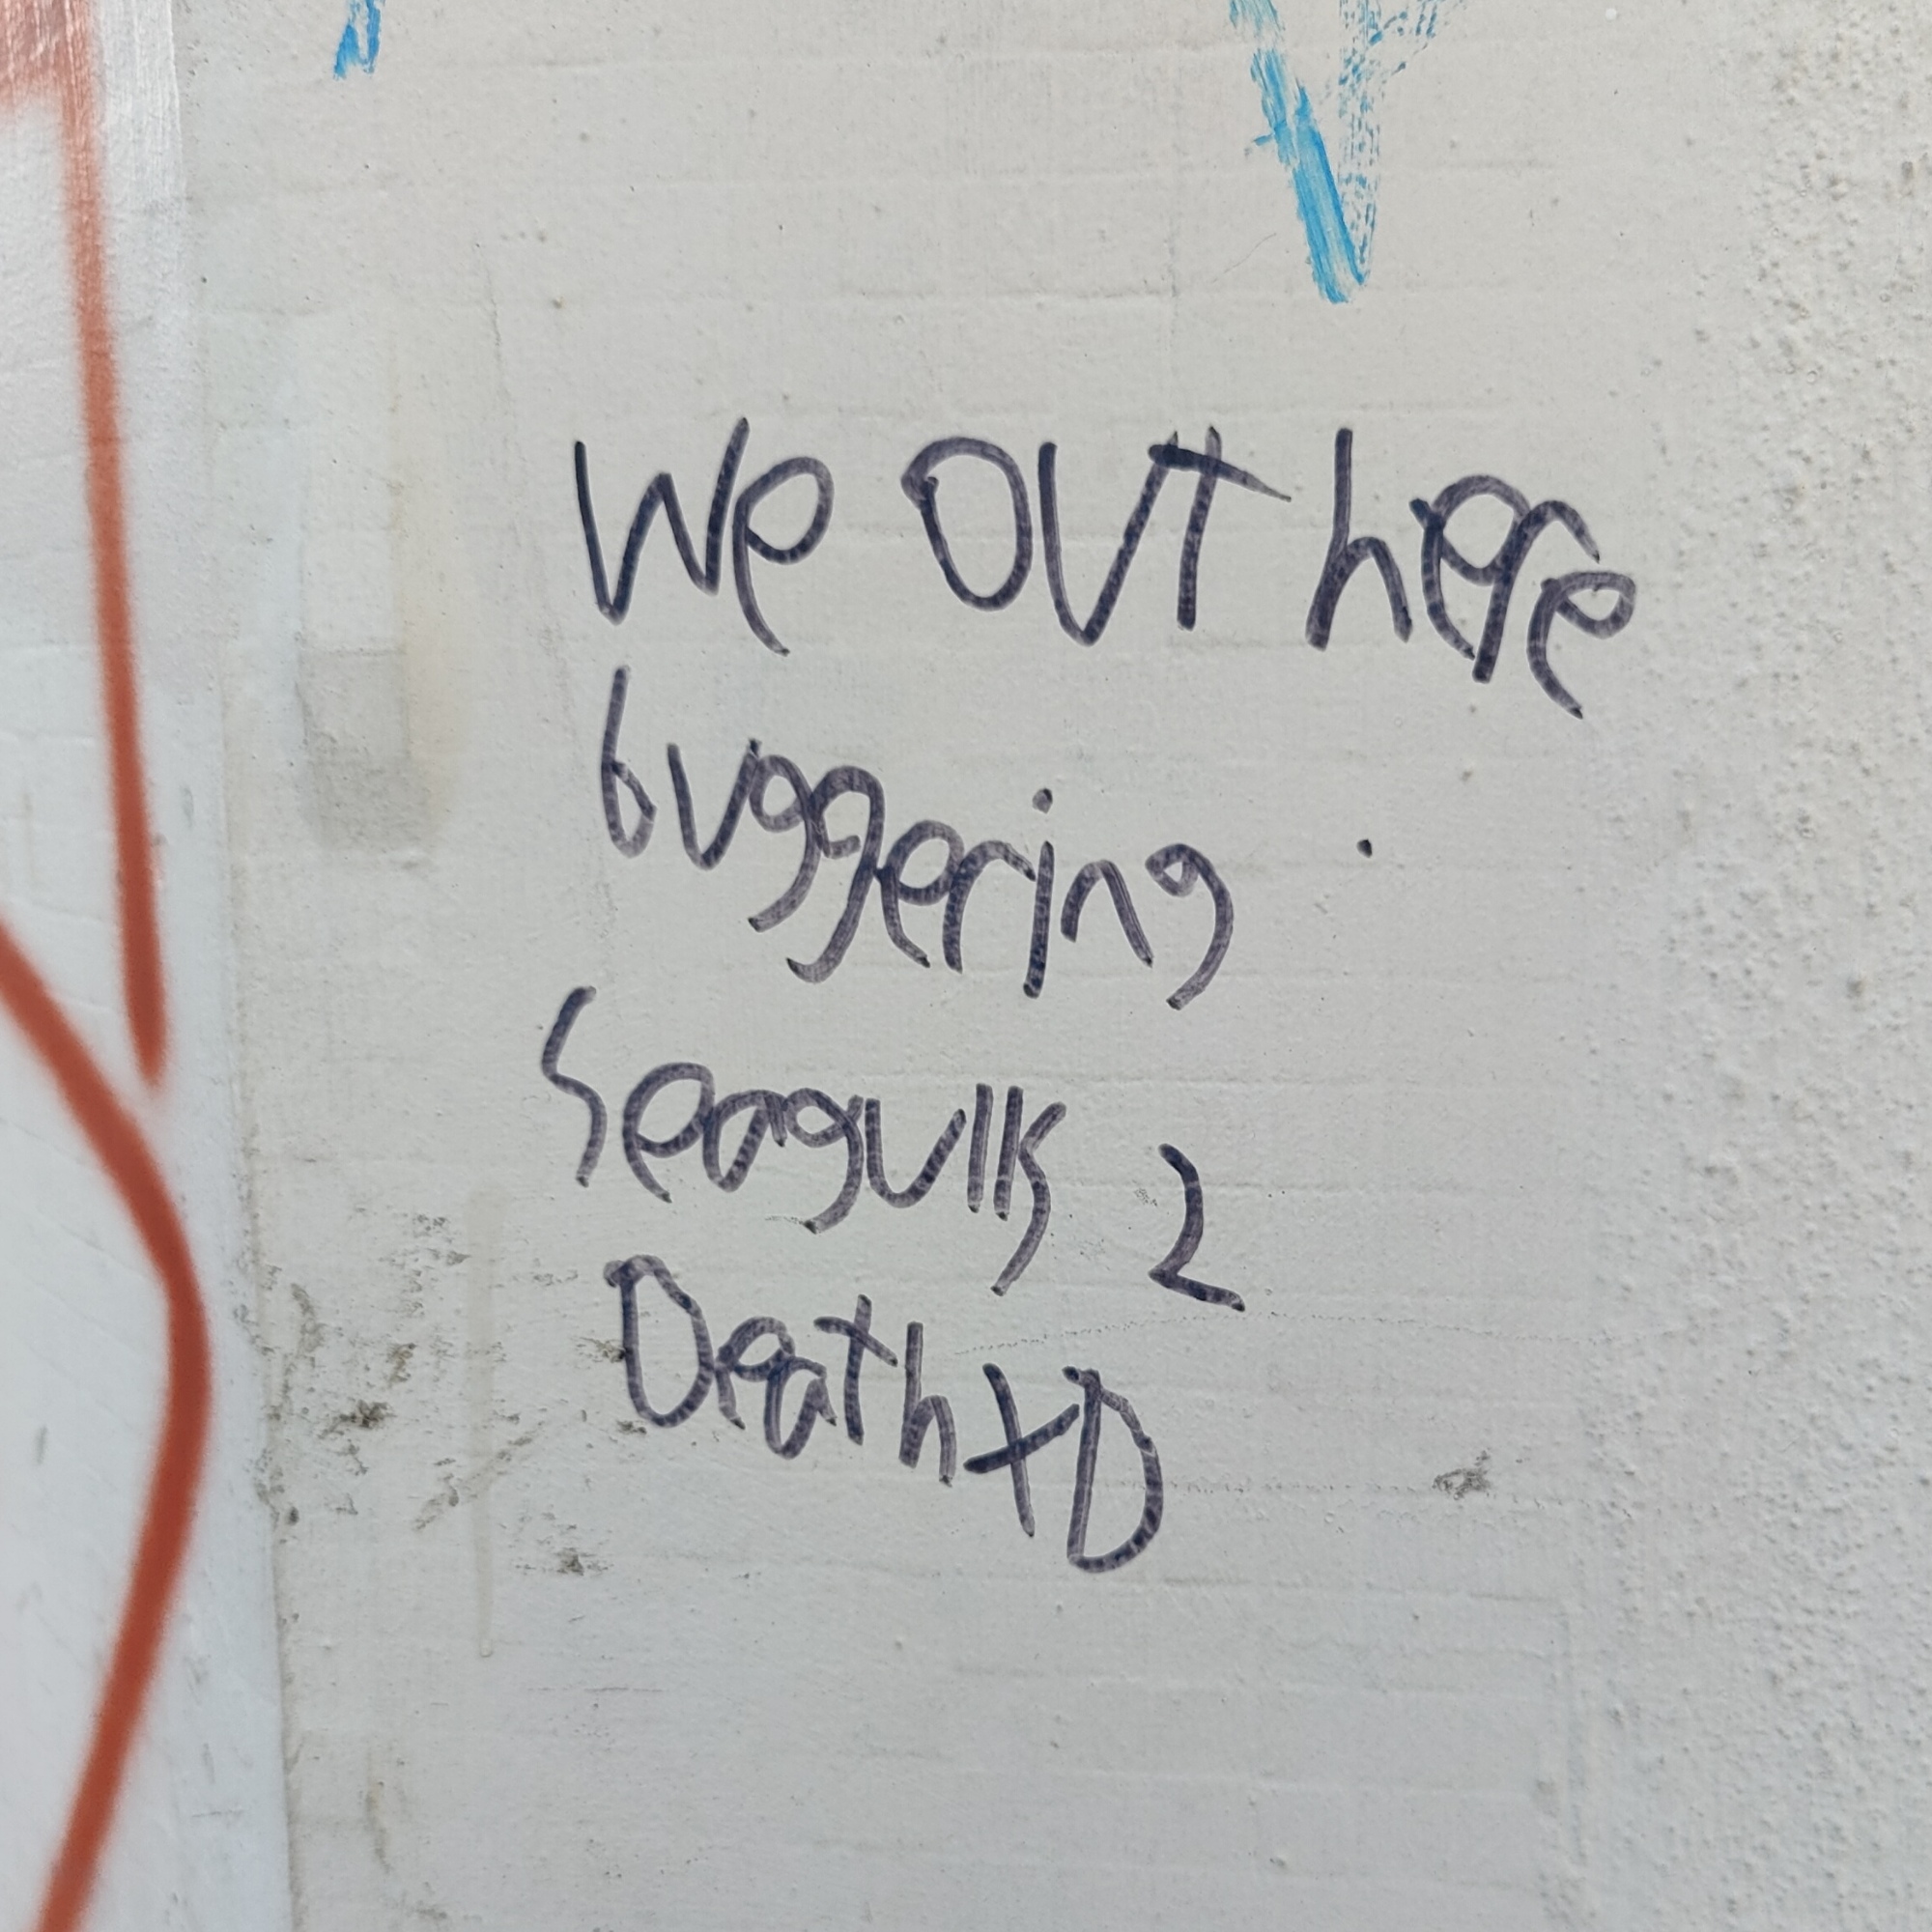 We OUT here
buggering
Seagulls 2
Death XD